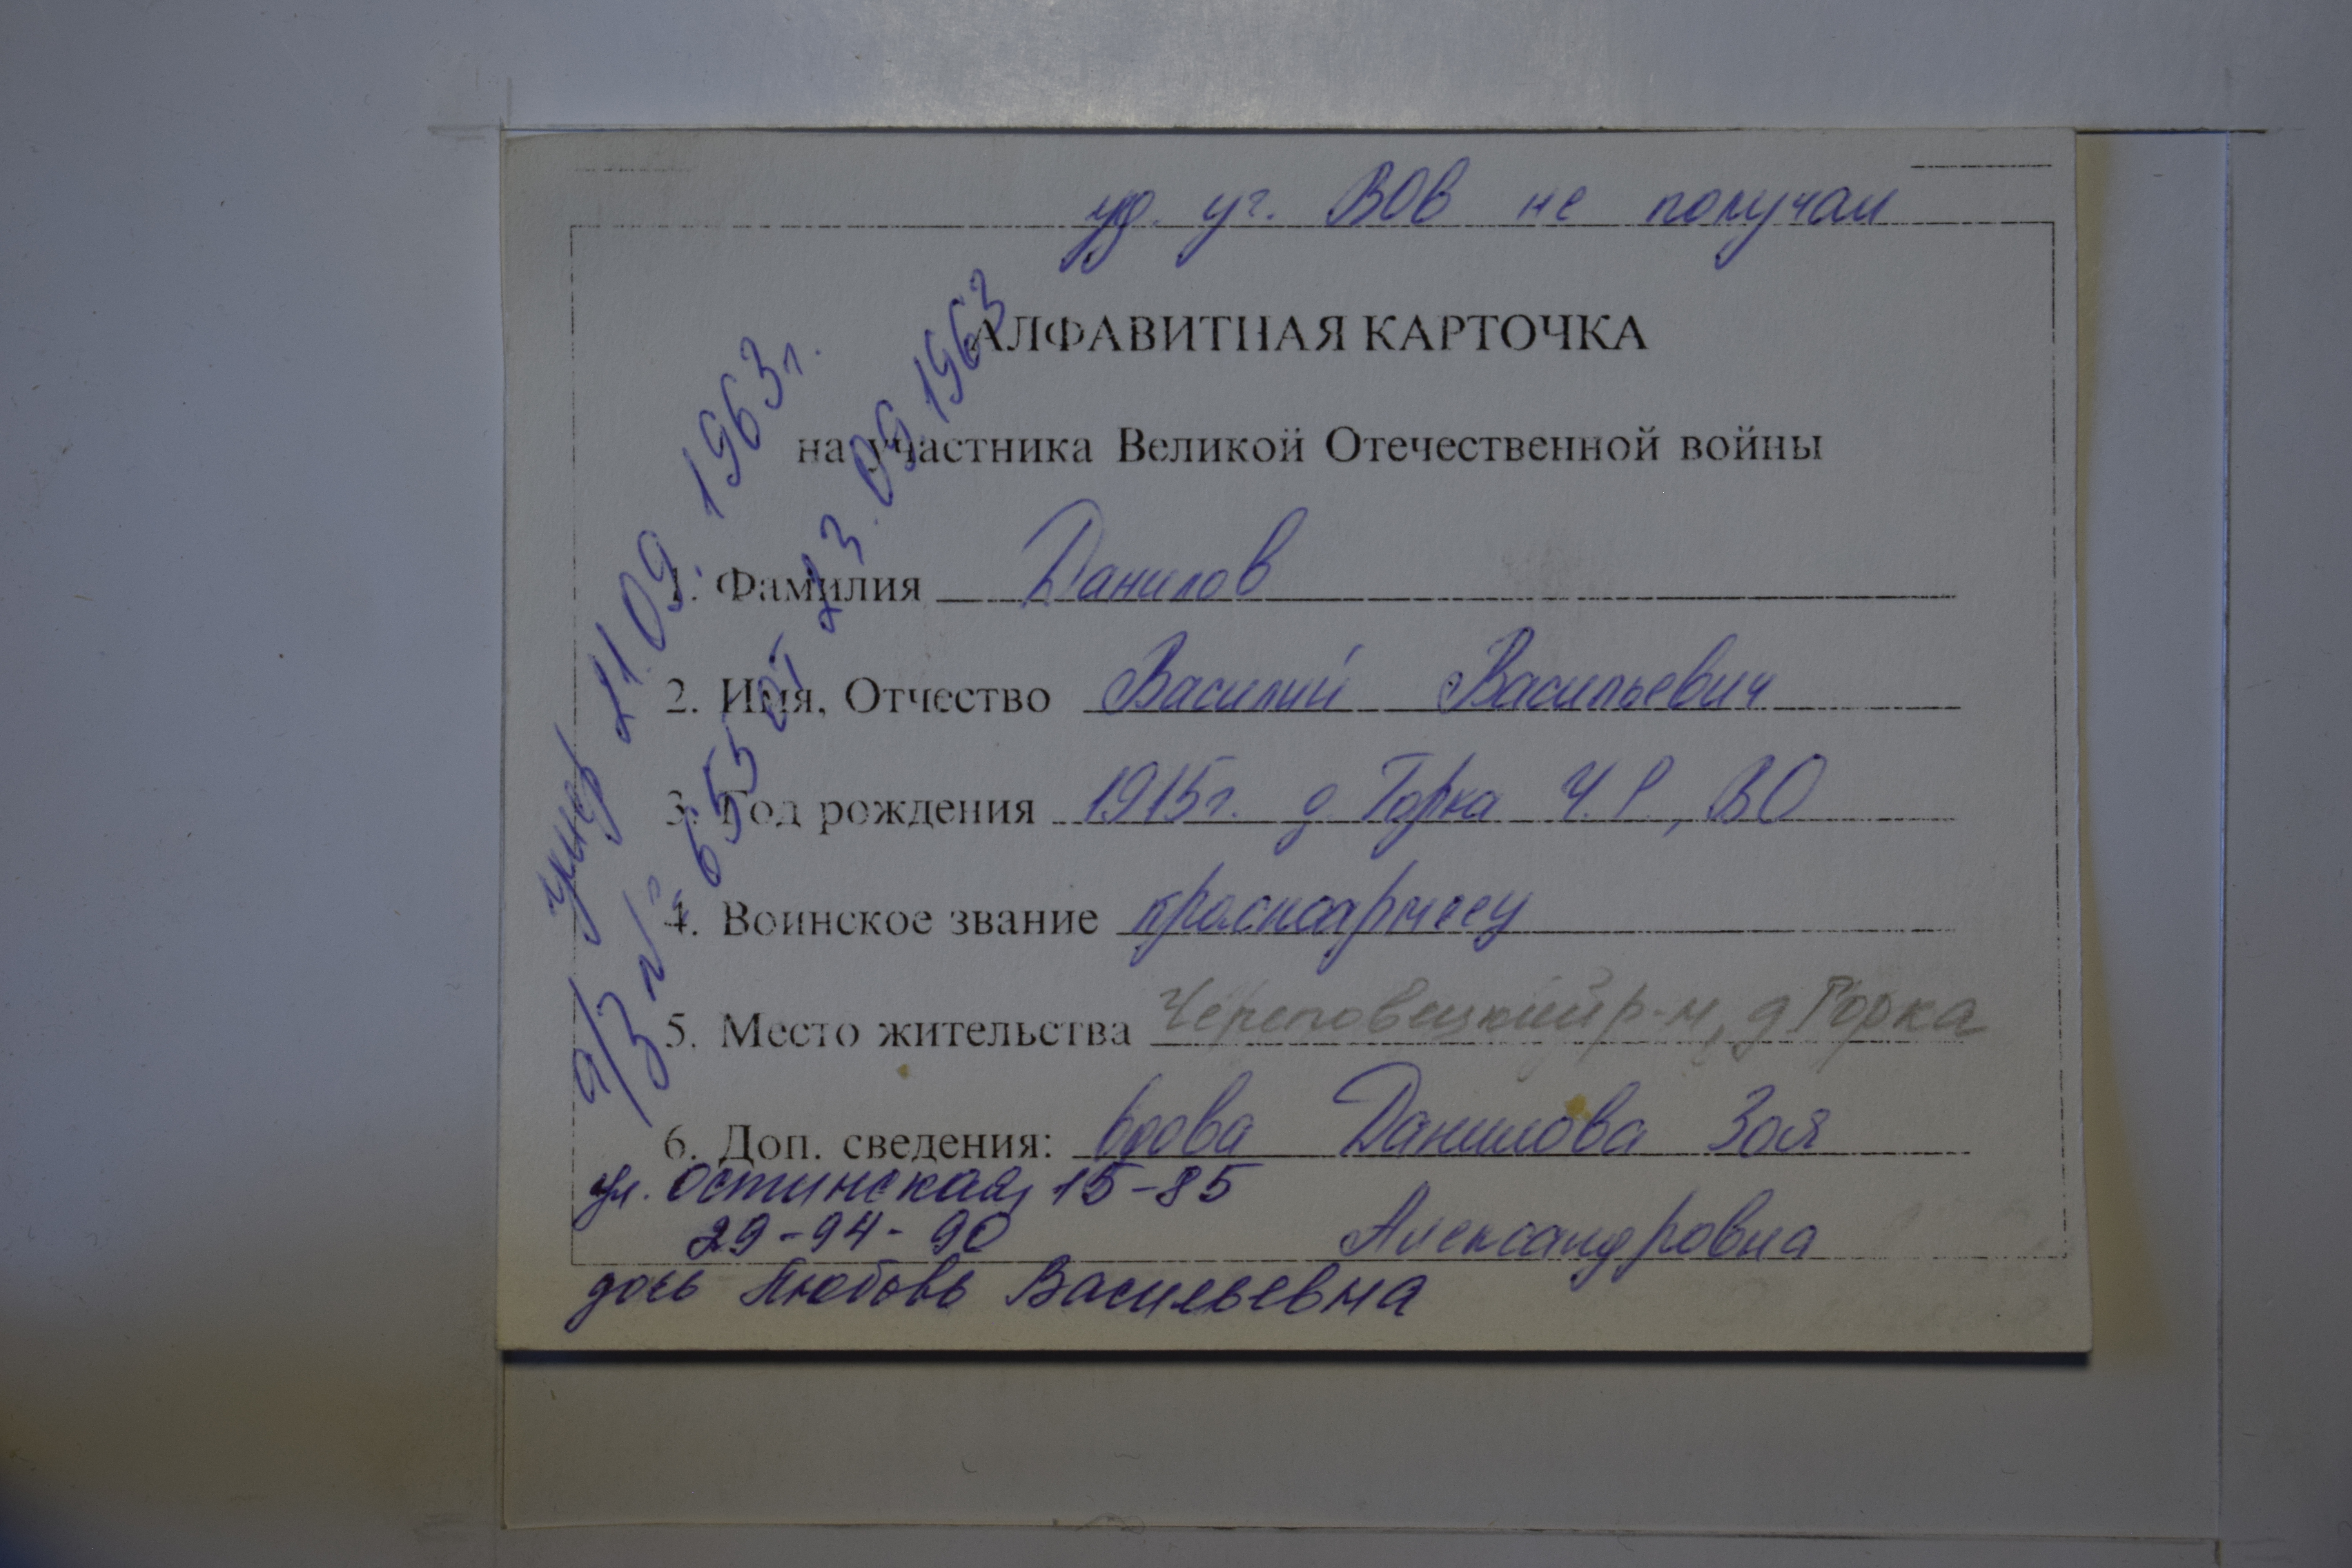 уд. уч. ВОВ не получал
АЛФАВИТНАЯ КАРТОЧКА
на участника Великой Отечественной войны
1. Фамилия Данилов
2. Имя, Отчество Василий Васильевич
3. Год рождения 1915г. д. Горка Ч.Р., ВО
4. Воинское звание красноармеец
5. Место жительства Череповецкий р-н, д Горка
6. Доп. сведения: вдова Данилова Зоя
Александровна
ул. Остинская, 15-85
29-94-90
дочь Любовь Васильевна
умер 21.09.1963г.
а/з № 655 от 23.09.1963